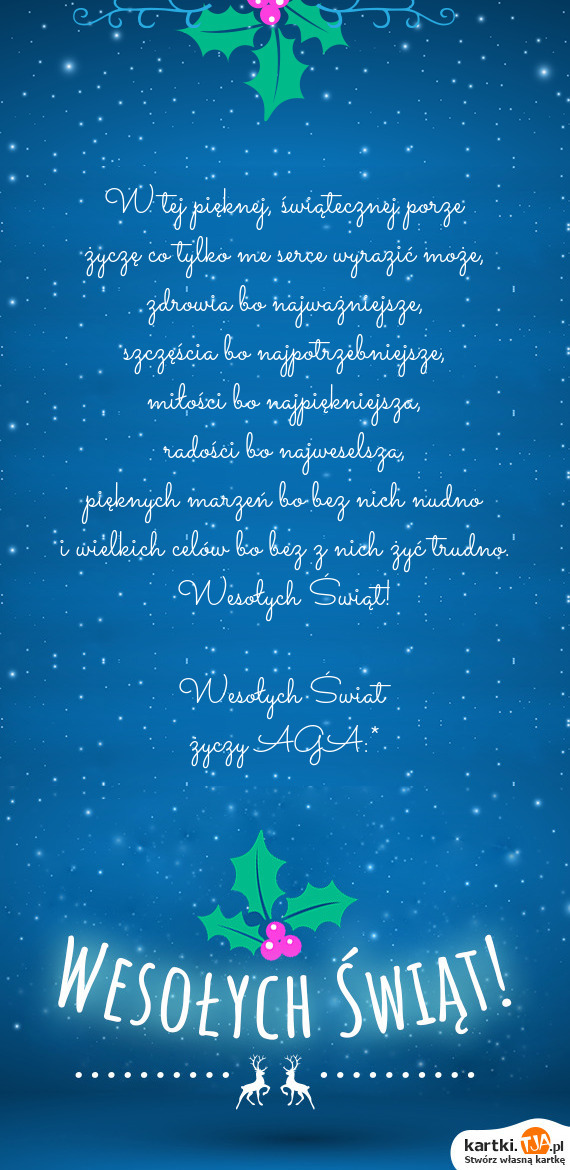 W tej pięknej, świątecznej porze
życzę co tylko me serce wyrazić może,
zdrowia bo najważniejsze,
szczęścia bo najpotrzebniejsze,
miłości bo najpiękniejsza,
radości bo najweselsza,
pięknych marzeń bo bez nich nudno
i wielkich celów bo bez z nich żyć trudno.
Wesołych Świąt!
Wesołych Świat
życzy AGA:*
Wesołych Świąt!
kartki.TJA.pl
Stwórz własną kartkę